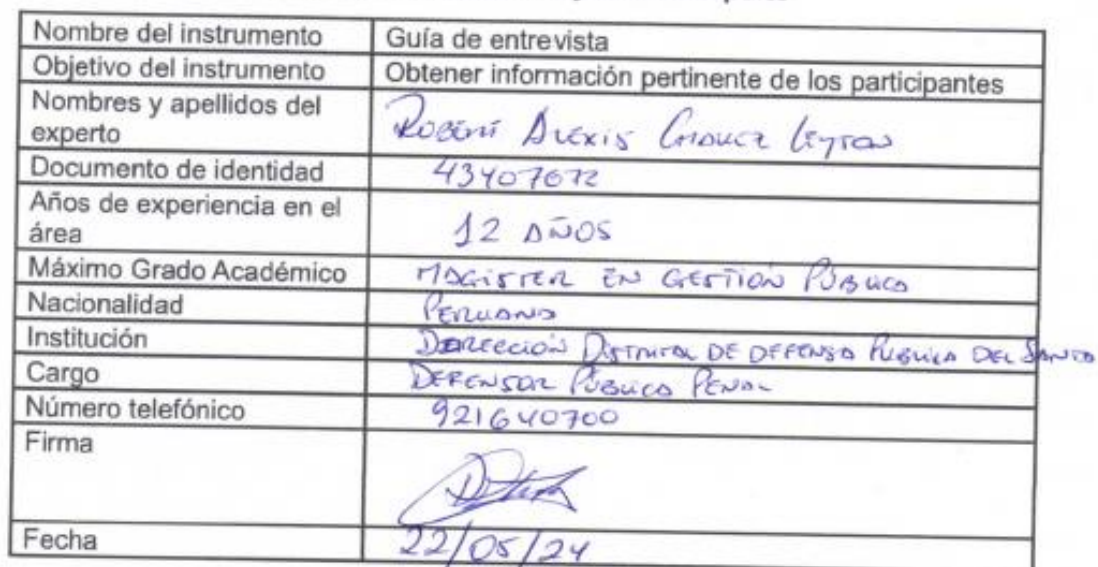 Nombre del instrumento Guía de entrevista
Objetivo del instrumento Obtener información pertinente de los participantes
Nombres y apellidos del
experto Robert Alexis Chavez Leyton
Documento de identidad 43407672
Años de experiencia en el
área 12 AÑOS
Máximo Grado Académico MAGISTER EN GESTIÓN PÚBLICA
Nacionalidad PERUANO
Institución DIRECCIÓN DISTRITAL DE DEFENSA PUBLICA DEL SANTA
Cargo DEFENSOR PÚBLICO PENAL
Número telefónico 921640700
Firma
Fecha 22/05/24